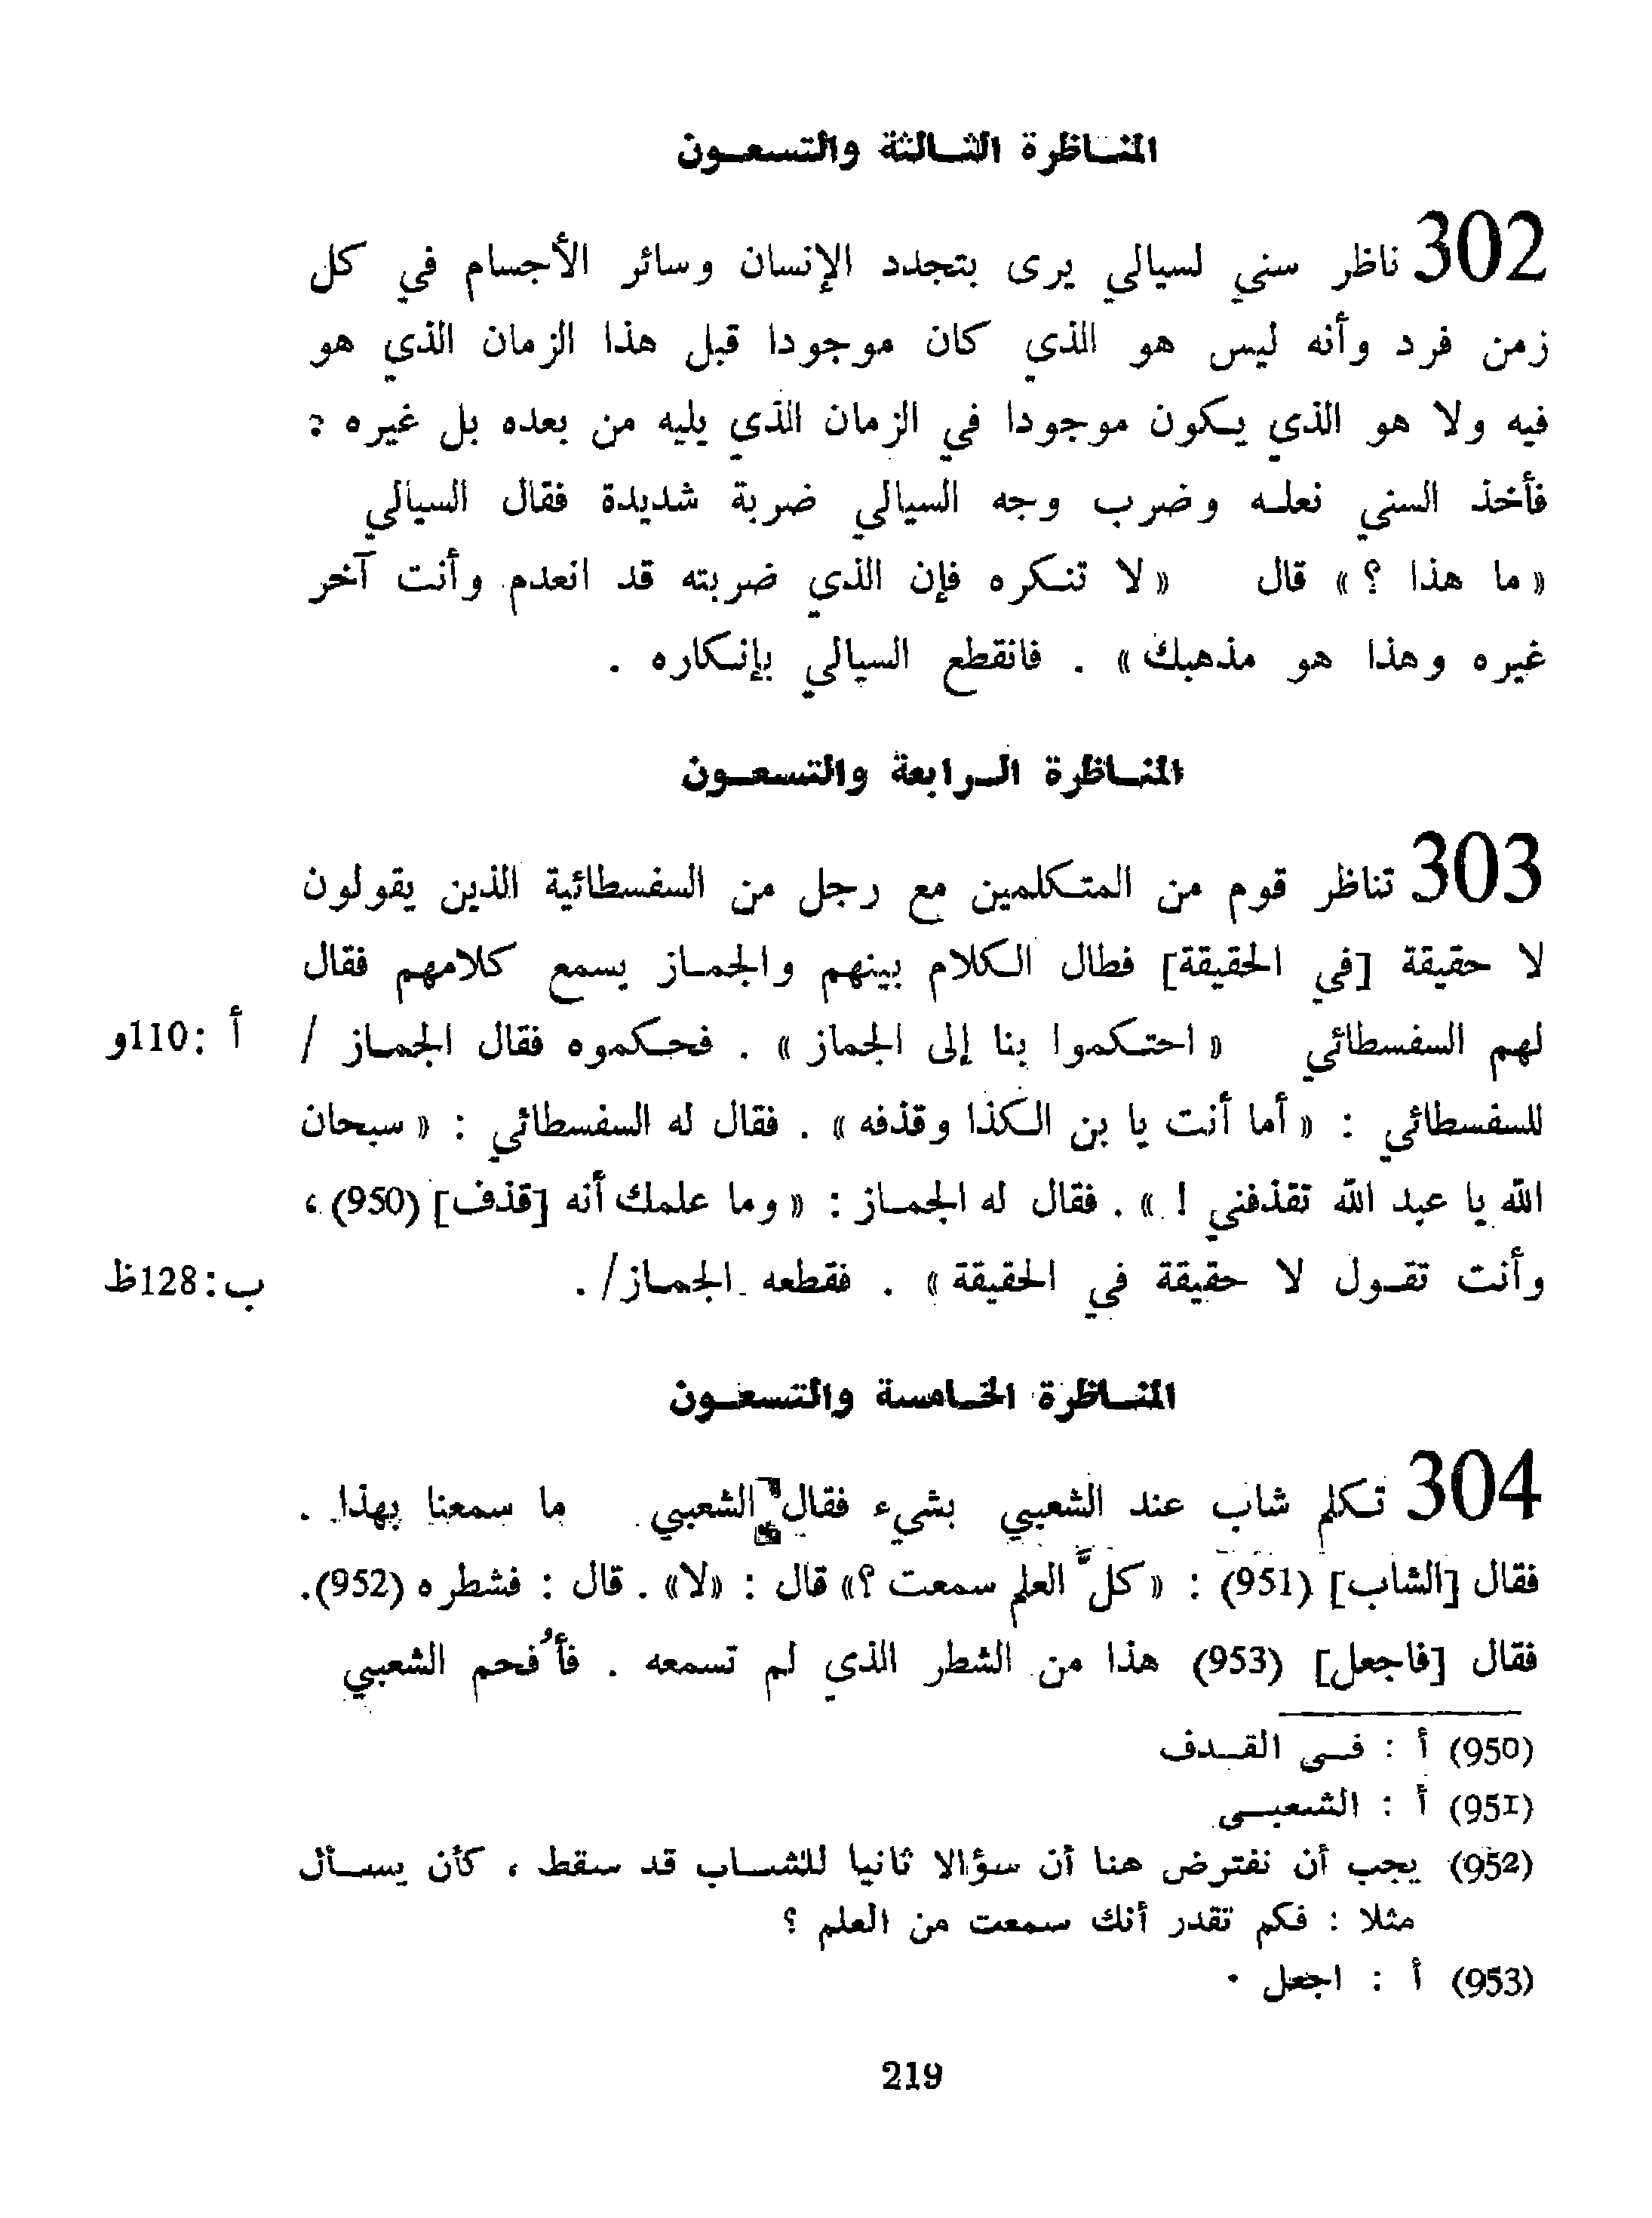 المناظرة الثالثة والتسعون
302 ناظر سني لسيالي يرى بتجدد الإنسان وسائر الأجسام في كل
زمن فرد وأنه ليس هو الذي كان موجودا قبل هذا الزمان الذي هو
فيه ولا هو الذي يكون موجودا في الزمان الذي يليه من بعده بل غيره :
فأخذ السني نعله وضرب وجه السيالي ضربة شديدة فقال السيالي
« ما هذا ؟ » قال « لا تنكره فإن الذي ضربته قد انعدم وأنت آخر
غيره وهذا هو مذهبك » . فانقطع السيالي بإنكاره .
المناظرة الرابعة والتسعون
303 تناظر قوم من المتكلمين مع رجل من السفسطائية الذين يقولون
لا حقيقة [في الحقيقة] فطال الكلام بينهم والجماز يسمع كلامهم فقال
لهم السفسطائي « احتكموا بنا إلى الجماز » . فحكموه فقال الجماز / أ :110و
للسفسطائي : « أما أنت يا بن الكذا وقذفه » . فقال له السفسطائي : « سبحان
الله يا عبد الله تقذفني ! » . فقال له الجماز : « وما علمك أنه [قذف] (950) ،
وأنت تقول لا حقيقة في الحقيقة » . فقطعه الجماز/ . ب :128ظ
المناظرة الخامسة والتسعون
304 تكلم شاب عند الشعبي بشيء فقال الشعبي ما سمعنا بهذا .
فقال [الشاب] (951) : « كلَّ العلم سمعت ؟» قال : «لا» . قال : فشطره (952).
فقال [فاجعل] (953) هذا من الشطر الذي لم تسمعه . فأُفحم الشعبي
(950) أ : في القدف
(951) أ : الشعبي
(952) يجب أن نفترض هنا أن سؤالا ثانيا للشاب قد سقط ، كأن يسأل
مثلا : فكم تقدر أنك سمعت من العلم ؟
(953) أ : اجعل .
219